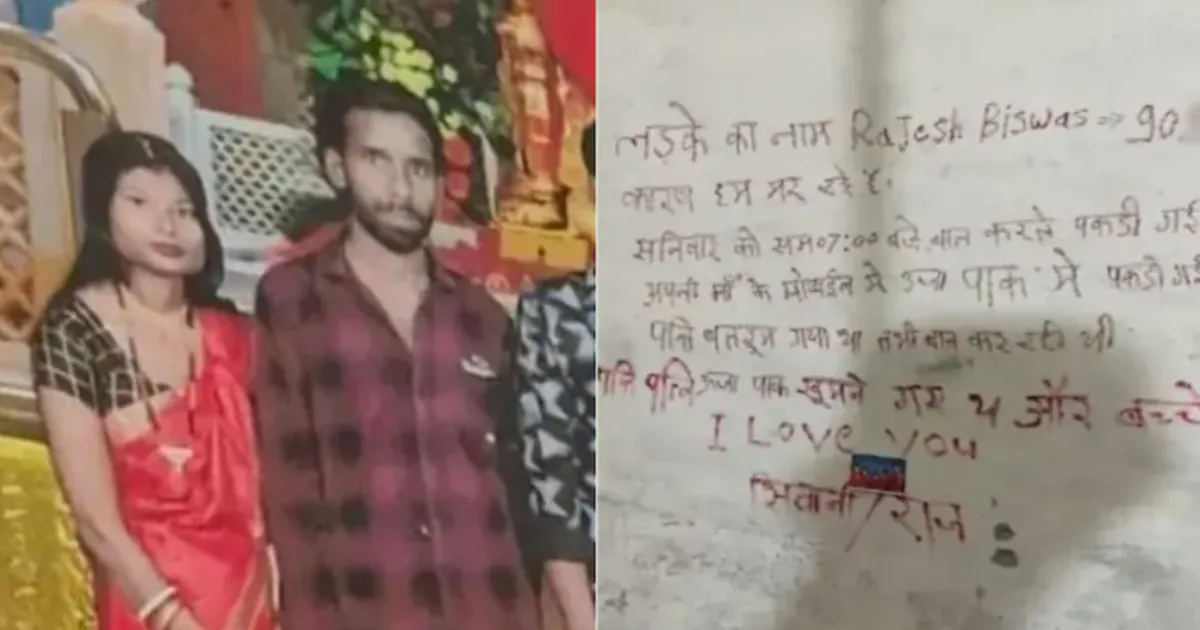 लड़के का नाम RaJesh Biswas ⇒ 90
कारण हम मर रहे है.
सनिवार को सम07:00 बजे बात करते पकडी गई
अपनी माँ के मोबाईल से ऊजा पाक मे पकडी गई
पति बातरूम गया था तभी बात कर रही थी
पत्नि ऊजा पाक घूमने गए थे और बच्चे
I Love You
शिवानी / राज